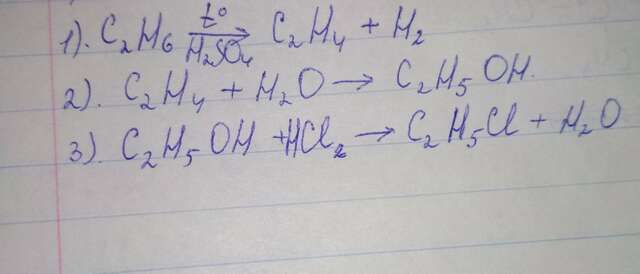 1). C₂H₆ t° / H₂SO₄ → C₂H₄ + H₂
2). C₂H₄ + H₂O → C₂H₅OH.
3). C₂H₅OH + HCl₂ → C₂H₅Cl + H₂O